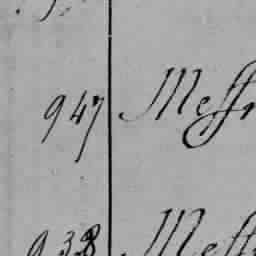 947 Messr
938 Mess